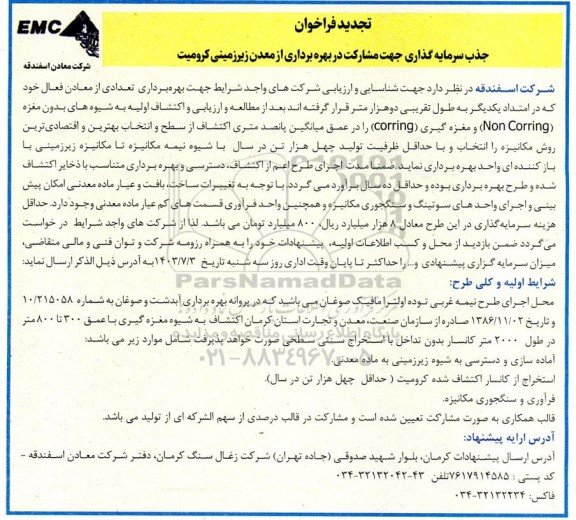 تجدید فراخوان
جذب سرمایه گذاری جهت مشارکت در بهره برداری از معدن زیرزمینی کرومیت
EMC
شرکت معادن اسفندقه
شرکت اسفندقه در نظر دارد جهت شناسایی و ارزیابی شرکت های واجد شرایط جهت بهره‌برداری تعدادی از معادن فعال خود
که در امتداد یکدیگر به طول تقریبی دوهزار متر قرار گرفته اند بعد از مطالعه و ارزیابی و اکتشاف اولیه به شیوه های بدون مغزه
(Non Corring) و مغزه گیری (corring) را در عمق میانگین پانصد متری اکتشاف از سطح و انتخاب بهترین و اقتصادی‌ترین
روش مکانیزه را انتخاب و با حداقل ظرفیت تولید چهل هزار تن در سال با شیوه نیمه مکانیزه تا مکانیزه زیرزمینی با
باز کننده ای واحد بهره برداری نماید. ضمنا مدت اجرای طرح اعم از اکتشاف، دسترسی و بهره برداری متناسب با ذخایر اکتشاف
شده و طرح بهره برداری بوده و حداقل ده سال برآورد می گردد. با توجه به تغییرات ساخت، بافت و عیار ماده معدنی امکان پیش
بینی و اجرای واحد های سورتینگ و سنگجوری مکانیزه و همچنین واحد فرآوری قسمت های کم عیار ماده معدنی وجود دارد. حداقل
هزینه سرمایه‌گذاری در این طرح معادل ۸ هزار میلیارد ریال، ۸۰۰ میلیارد تومان می باشد. لذا از شرکت های واجد شرایط در خواست
می‌گردد ضمن بازدید از محل و کسب اطلاعات اولیه، پیشنهادات خود را به همراه رزومه شرکت و توان فنی و مالی متقاضی،
میزان سرمایه گزاری پیشنهادی و... را حداکثر تا پایان وقت اداری روز سه شنبه تاریخ ۱۴۰۳/۷/۳ به آدرس ذیل الذکر ارسال نماید:
شرایط اولیه و کلی طرح:
محل اجرای طرح نیمه غربی توده اولترا مافیک صوغان می باشد که در پروانه بهره برداری آبدشت و صوغان به شماره ۱۰/۲۱۵۰۵۸
و تاریخ ۱۳۸۶/۱۱/۰۲ صادره از سازمان صنعت، معدن و تجارت استان کرمان اکتشاف به شیوه مغزه گیری با عمق ۳۰۰ تا ۸۰۰ متر
در طول ۲۰۰۰ متر کانسار بدون تداخل با استخراج سنتی سطحی صورت خواهد پذیرفت شامل موارد زیر می باشد:
آماده سازی و دسترسی به شیوه زیرزمینی به ماده معدنی.
استخراج از کانسار اکتشاف شده کرومیت ( حداقل چهل هزار تن در سال).
فرآوری و سنگجوری مکانیزه.
قالب همکاری به صورت مشارکت تعیین شده است و مشارکت در قالب درصدی از سهم الشرکه ای از تولید می باشد.
آدرس ارایه پیشنهاد:
آدرس ارسال پیشنهادات کرمان، بلوار شهید صدوقی (جاده تهران) شرکت زغال سنگ کرمان، دفتر شرکت معادن اسفندقه -
کد پستی : ۷۶۱۷۹۱۴۵۸۵ تلفن ۴۳-۰۳۴-۳۲۱۳۲۰۴۲
فاکس: ۰۳۴-۳۲۱۳۲۲۳۴
ParsNamadData
۰۲۱-۸۸۳۴۹۶۷۰-۵